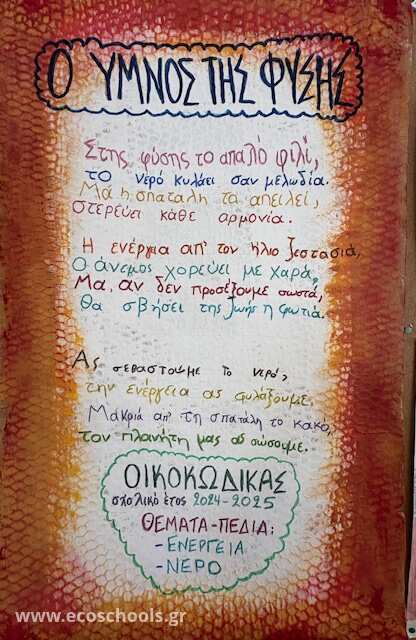 Ο ΥΜΝΟΣ ΤΗΣ ΦΥΣΗΣ
Στης φύσης το απαλό φιλί,
το νερό κυλάει σαν μελωδία.
Μα η σπατάλη το απειλεί,
στερεύει κάθε αρμονία.
Η ενέργια απ' τον ήλιο ζεστασιά,
Ο άνεμος χορεύει με χαρά,
Μα, αν δεν προσέξουμε σωστά,
θα σβήσει της ζωής η φωτιά.
Ας σεβαστούμε το νερό,
την ενέργεια ας φυλάξουμε.
Μακριά απ' τη σπατάλη το κακό,
τον πλανήτη μας ας σώσουμε.
ΟΙΚΟΚΩΔΙΚΑΣ
σχολικό έτος 2024-2025
ΘΕΜΑΤΑ-ΠΕΔΙΑ:
-ΕΝΕΡΓΕΙΑ
-ΝΕΡΟ
www.ecoschools.gr